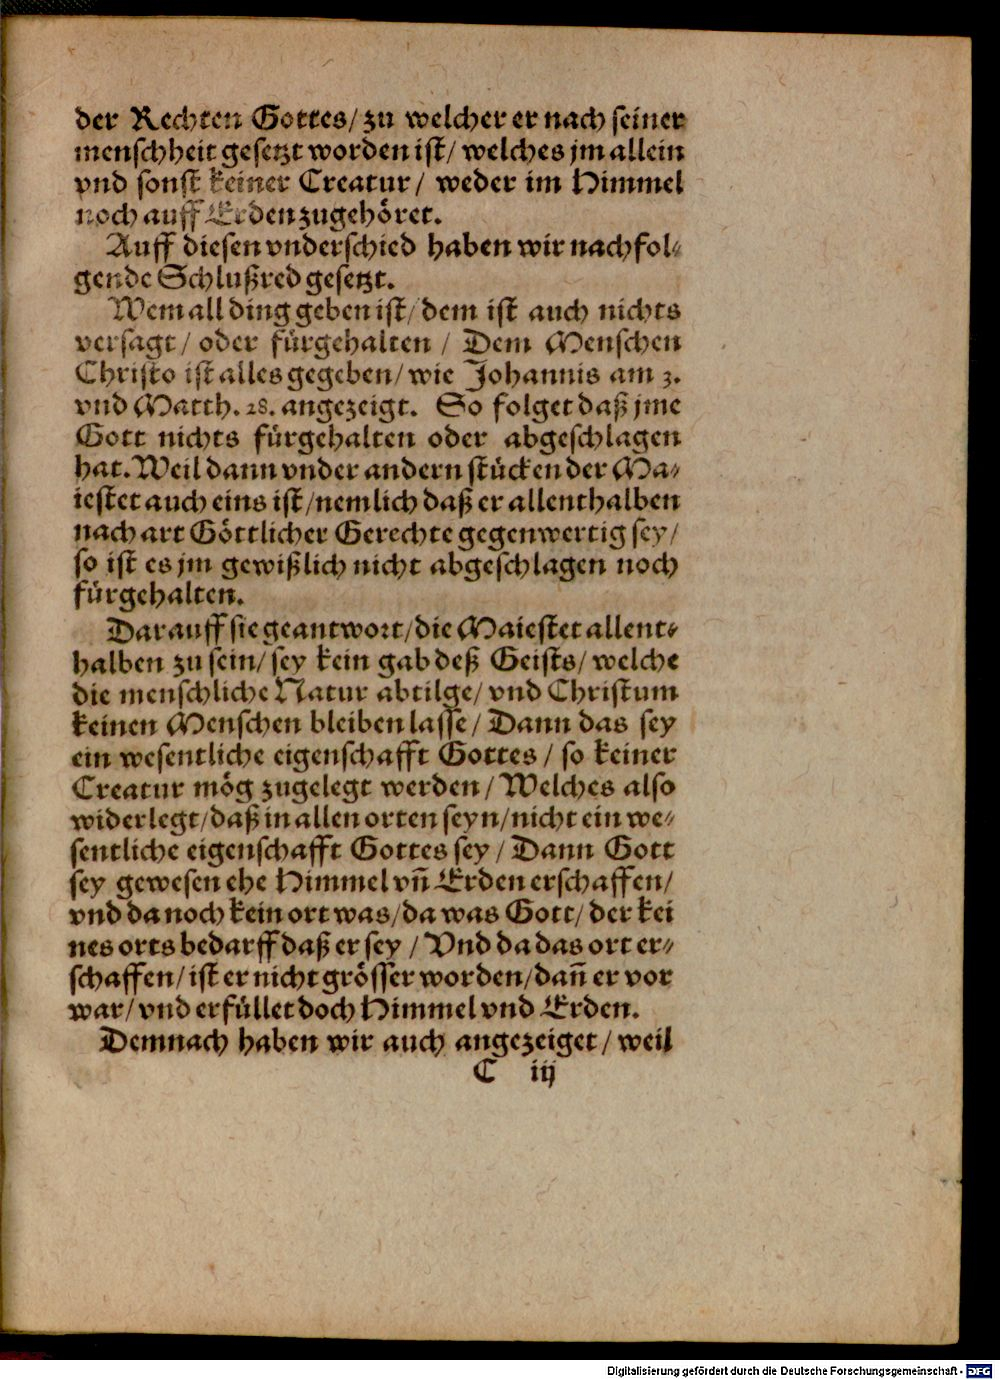 der Rechten Gottes/ zu welcher er nach seiner
menschheit gesetzt worden ist/ welches jm allein
vnd sonst keiner Creatur/ weder im Himmel
noch auff Erden zugehöret.
Auff diesen vnderschied haben wir nachfol-
gende Schlußred gesetzt.
Wem all ding geben ist/ dem ist auch nichts
versagt/ oder fürgehalten/ Dem Menschen
Christo ist alles gegeben/ wie Johannis am 3.
vnd Matth. 28. angezeigt. So folget daß jme
Gott nichts fürgehalten oder abgeschlagen
hat. Weil dann vnder andern stücken der Ma-
iestet auch eins ist/ nemlich daß er allenthalben
nach art Göttlicher Gerechte gegenwertig sey/
so ist es jm gewißlich nicht abgeschlagen noch
fürgehalten.
Darauff sie geantwort/ die Maiestet allent-
halben zu sein/ sey kein gab deß Geists/ welche
die menschliche Natur abtilge/ vnd Christum
keinen Menschen bleiben lasse/ Dann das sey
ein wesentliche eigenschafft Gottes/ so keiner
Creatur mög zugelegt werden/ Welches also
widerlegt/ daß in allen orten seyn/ nicht ein we-
sentliche eigenschafft Gottes sey/ Dann Gott
sey gewesen ehe Himmel vñ Erden erschaffen/
vnd da noch kein ort was/ da was Gott/ der kei
nes orts bedarff daß er sey/ Vnd da das ort er-
schaffen/ ist er nicht grösser worden/ dañ er vor
war/ vnd erfüllet doch Himmel vnd Erden.
Demnach haben wir auch angezeiget/ weil
C iij
Digitalisierung gefördert durch die Deutsche Forschungsgemeinschaft - DFG